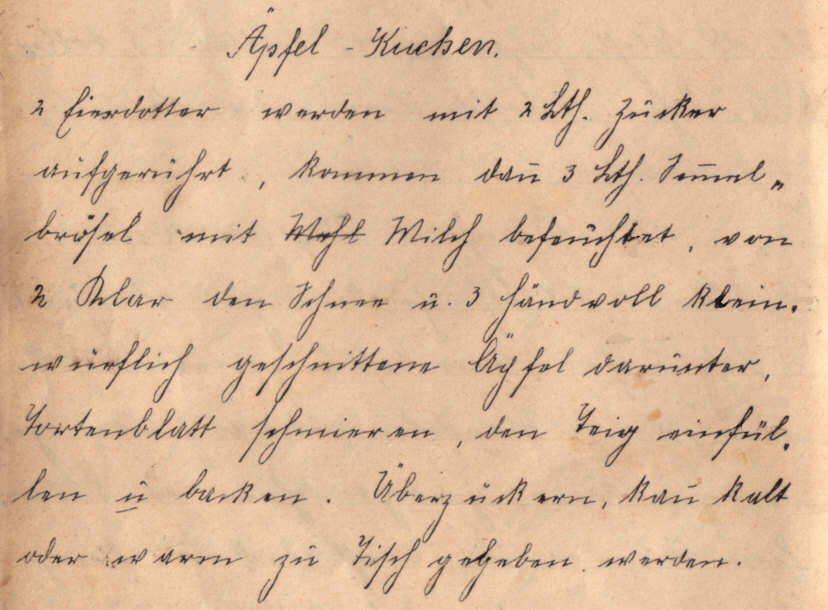 Äpfel - Kuchen.
2 Eierdotter werden mit 2 Lth. Zucker
aufgerührt, kommen dan̄ 3 Lth. Sem̄el„
brösel mit ~~Mehl~~ Milch befeuchtet, von
2 Klar den Schnee u. 3 Händvoll klein.
würflich geschnittene Äpfel darunter,
Tortenblatt schmieren, den Teig einfül„
len u backen. Überzuckern, kan̄ kalt
oder warm zu Tisch gegeben werden.